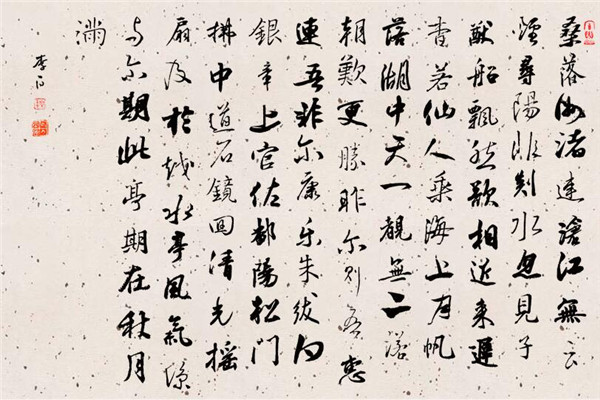 桑落洲渚連滄江無云
煙尋陽非剡水忽見子
猷船飄然欲相近來遲
杳若仙人乘海上月帆
落湖中天一覩無二諾
朝歡更勝昨尔則吾惠
連吾非尔康乐朱紱白
銀章上官佐鄱陽松門
拂中道石鏡回清光摇
扇及於越水亭風氣凉
与尔期此亭期在秋月
满
李白